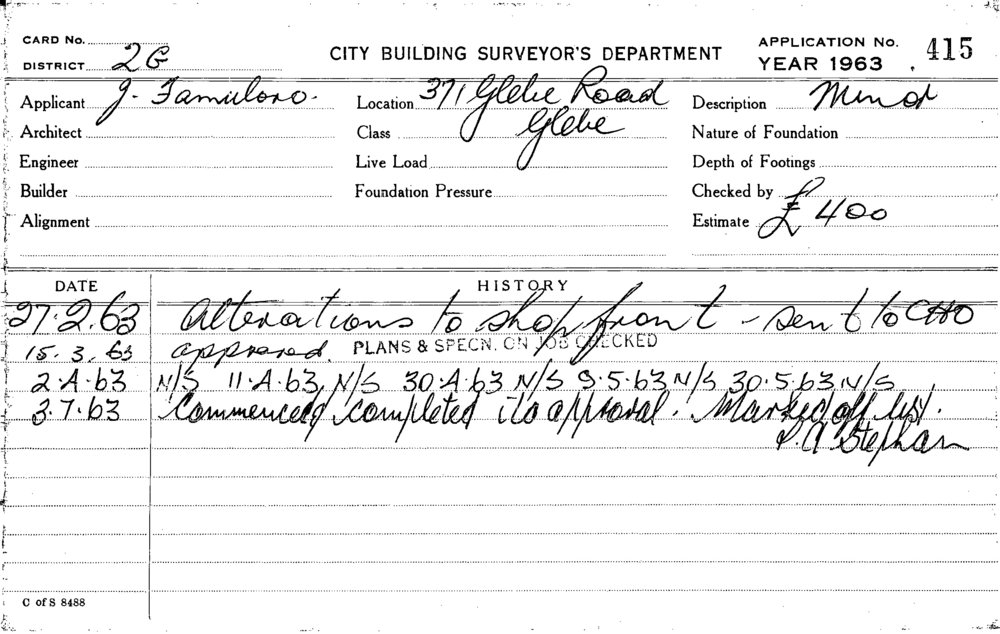 CARD No.
DISTRICT 2G
CITY BUILDING SURVEYOR'S DEPARTMENT
APPLICATION No. 415
YEAR 1963
Applicant J. Famularo.
Location 371 Glebe Road
Glebe
Description Mind
Architect
Class
Nature of Foundation
Engineer
Live Load
Depth of Footings
Builder
Foundation Pressure
Checked by
Alignment
Estimate £ 400
DATE
HISTORY
27.2.63 Alterations to shop front - sent to CHO
15.3.63 approved. PLANS & SPECN. ON JOB CHECKED
2.4.63 N/S 11.4.63, N/S 30.4.63 N/S 9.5.63 N/S 30.5.63 N/S
3.7.63 Commenced completed to approval. Marked off list.
Stephan
C of S 8488